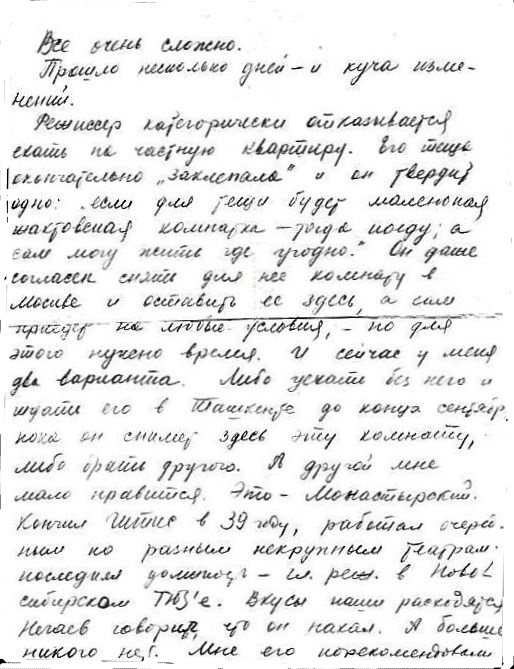 Все очень сложно.
Прошло несколько дней – и куча изме-
нений.
Режиссер категорически отказывается
ехать на частную квартиру. Его теща
окончательно „заклепала" и он твердит
одно: „если для тещи будет маленькая
шахтовская комнатка – тогда поеду; а
сам могу жить где угодно." Он даже
согласен снять для нее комнату в
Москве и оставить ее здесь, а сам
приедет на любые условия, – но для
этого нужно время. И сейчас у меня
два варианта. Либо уехать без него и
ждать его в Ташкенте до конца сентябр.
пока он снимет здесь эту комнату,
либо брать другого. А другой мне
мало нравится. Это – Монастырский.
Кончил Гитис в 39 году, работал очеред.
ным по разным некрупным театрам.
последняя должность – гл. реж. в Ново
сибирском ТЮЗ'е. Вкусы наши расходятся
говорит, что он нахал. А больше
никого нет. Мне его порекомендовали